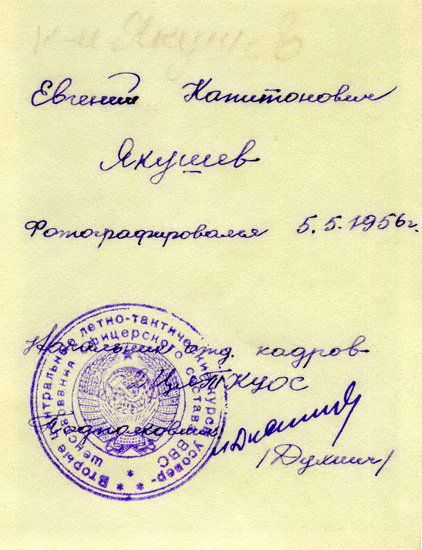 к-н Якушев
Евгений Капитонович
Якушев
Фотографировался 5.5.1956г.
Начальник отд. кадров
ЦЛТКУОС
Подполковник
/Духнич/
Вторые Центральные летно-тактические курсы усовер-
шенствования офицерского состава ВВС